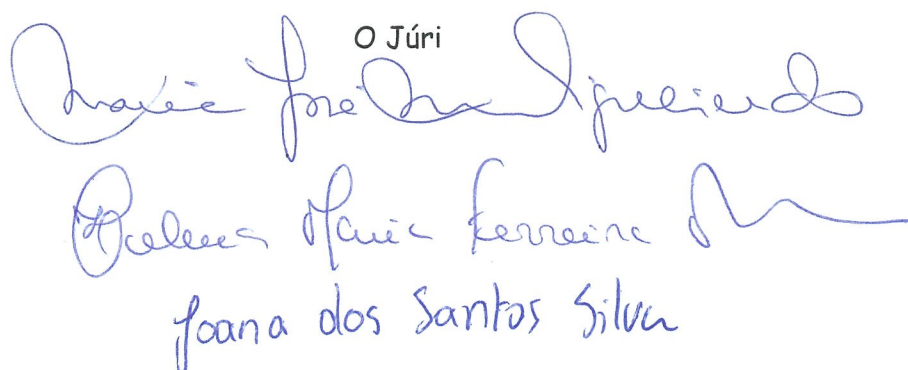 O Júri
Maria José Figueiredo
Helena Maria Ferreira
Joana dos Santos Silva